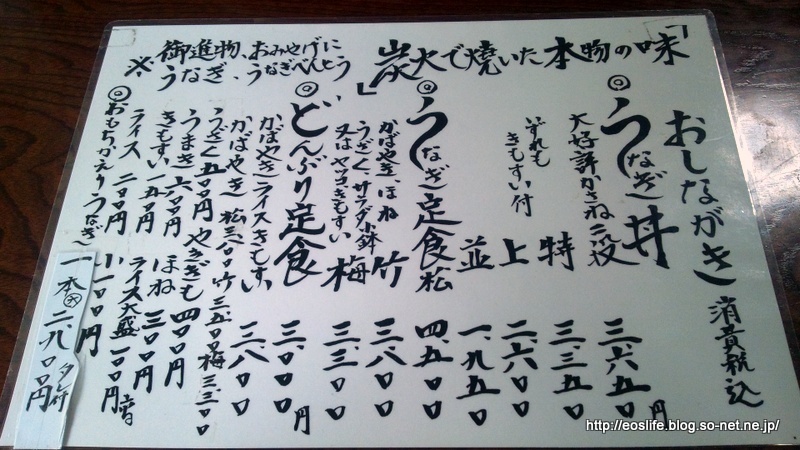 「炭火で焼いた本物の味」
※御進物、おみやげに
うなぎ、うなぎべんとう
おしながき 消費税込
◎うなぎ丼
大好評かさね二段 三、六五〇円
特 三、三五〇
いずれもきもすい付
上 二、六〇〇
並 一、九五〇
◎うなぎ定食 松 四、五〇〇
かばやき、ほね
うざく、サラダ小鉢
又はヤッコきもすい
竹 三、八〇〇
梅 三、三〇〇
◎どんぶり定食 三、〇〇〇円
かばやきライスきもすい 三、八〇〇
かばやき 松三、八〇〇 竹三、五〇〇 梅三、三〇〇
うざく 五〇〇円 やきぎも 四〇〇円
うまき 六〇〇円 ほね 三〇〇円
きもすい 一五〇円 ライス大盛 一〇〇円
ライス 二〇〇円
◎おもちかえりうなぎ 小 円
一本 二、九〇〇円 タレ付
http://eoslife.blog.so-net.ne.jp/